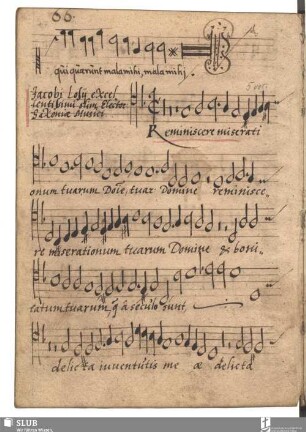 66.
qui quærunt mala mihi, mala mihi,
Jacobi
olim Elector:
Saxoniæ Musici
5 voc.
Reminiscere miserati
onum tuarum Doīe, tuar Domine reminisce..
re miserationum tuarum Domine & boni..
tatum tuarum q̃ a seculo sunt
delicta iuventutis meæ delicta
SLUB
Wir führen Wissen.